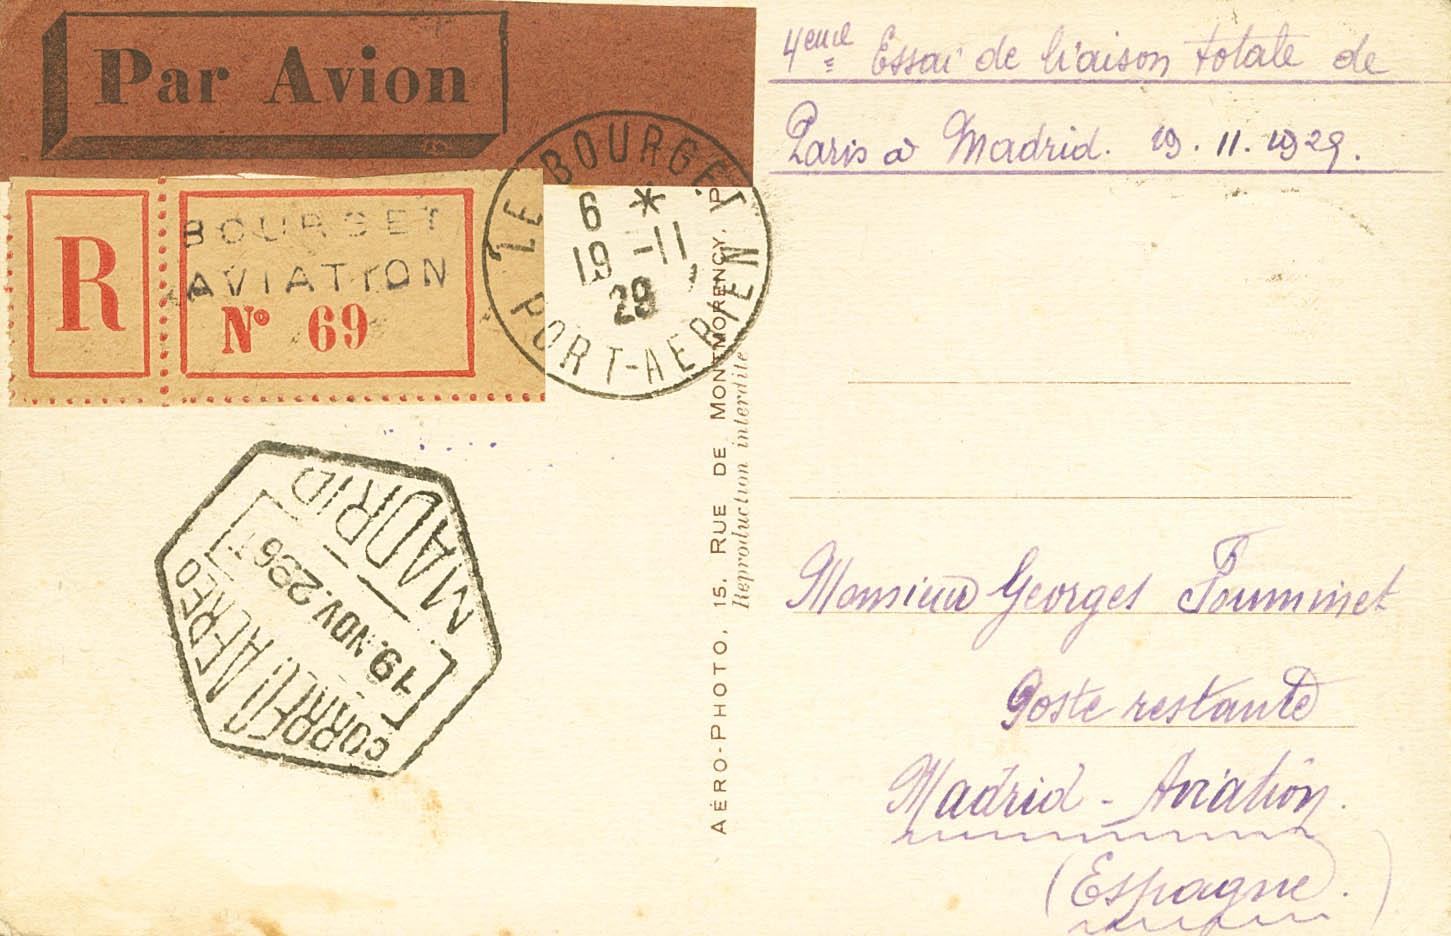 Par Avion
4eme Essai de liaison totale de
Paris à Madrid. 19.11.1929.
R
BOURGET
AVIATION
N° 69
LE BOURGET
6 *
19 -11
29
PORT-AERIEN
AÉRO-PHOTO, 15, RUE DE MONTMORENCY, P
Reproduction interdite
MADRID
MADRID
19.NOV.29
CORREO AEREO
CORREO AEREO
Monsieur Georges
Poste restante
Madrid - Aviation.
(Espagne.)